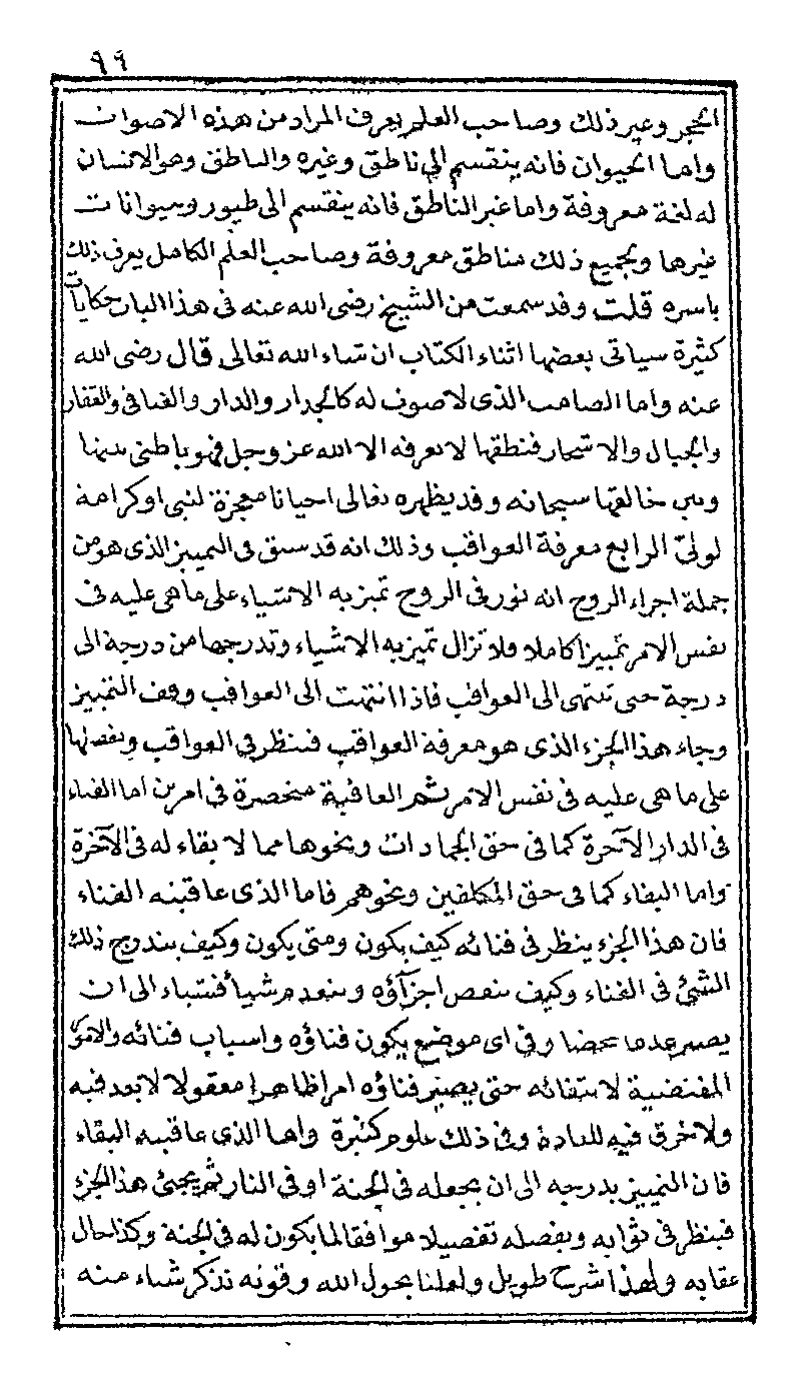 ٩٩
الحجر وغير ذلك وصاحب العلم يعرف المراد من هذه الاصوات
واما الحيوان فانه ينقسم الى ناطق وغيره والناطق وهو الانسان
له لغة معروفة واما غير الناطق فانه ينقسم الى طيور وحيوانات
غيرها ولجميع ذلك مناطق معروفة وصاحب العلم الكامل يعرف ذلك
باسره قلت وقد سمعت من الشيخ رضى الله عنه فى هذا الباب حكايات
كثيرة سياتى بعضها اثناء الكتاب ان شاء الله تعالى قال رضى الله
عنه واما الصامت الذى لا صوت له كالجدار والدار والفيافى والقفار
والجبال والاشجار فنطقها لا يعرفه الا الله عز وجل فهو باطنى بينها
وبين خالقها سبحانه وقد يظهره تعالى احيانا معجزة لنبى او كرامة
لولىّ الرابع معرفة العواقب وذلك انه قد سبق فى التمييز الذى هو من
جملة اجزاء الروح انه نور فى الروح تميز به الاشياء على ما هى عليه فى
نفس الامر تمييزا كاملا ولا تزال تميز به الاشياء وتدرجها من درجة الى
درجة حتى تنتهى الى العواقب فاذا انتهت الى العواقب وقف التمييز
وجاء هذا الجزء الذى هو معرفة العواقب فينظر فى العواقب ويفصلها
على ما هى عليه فى نفس الامر ثم العاقبة منحصرة فى امرين اما الفناء
فى الدار الآخرة كما فى حق الجمادات ونحوها مما لا بقاء له فى الآخرة
واما البقاء كما فى حق المكلفين ونحوهم فاما الذى عاقبته الفناء
فان هذا الجزء ينظر فى فنائه كيف يكون ومتى يكون وكيف يتدرج ذلك
الشئ فى الفناء وكيف تنقص اجزآؤه وينعدم شيأ فشياء الى ان
يصير عدما محضا وفى اى موضع يكون فناؤه واسباب فنائه والامور
المقتضية لانتفائه حتى يصير فناؤه امرا ظاهرا معقولا لا بعد فيه
ولا خرق فيه للعادة وفى ذلك علوم كثيرة واما الذى عاقبته البقاء
فان التمييز يدرجه الى ان يجعله فى الجنة او فى النار ثم يجئ هذا الجزء
فينظر فى ثوابه ويفصله تفصيلا موافقا لما يكون له فى الجنة وكذا حال
عقابه ولهذا شرح طويل ولعلنا بحول الله وقوته نذكر شياء منه